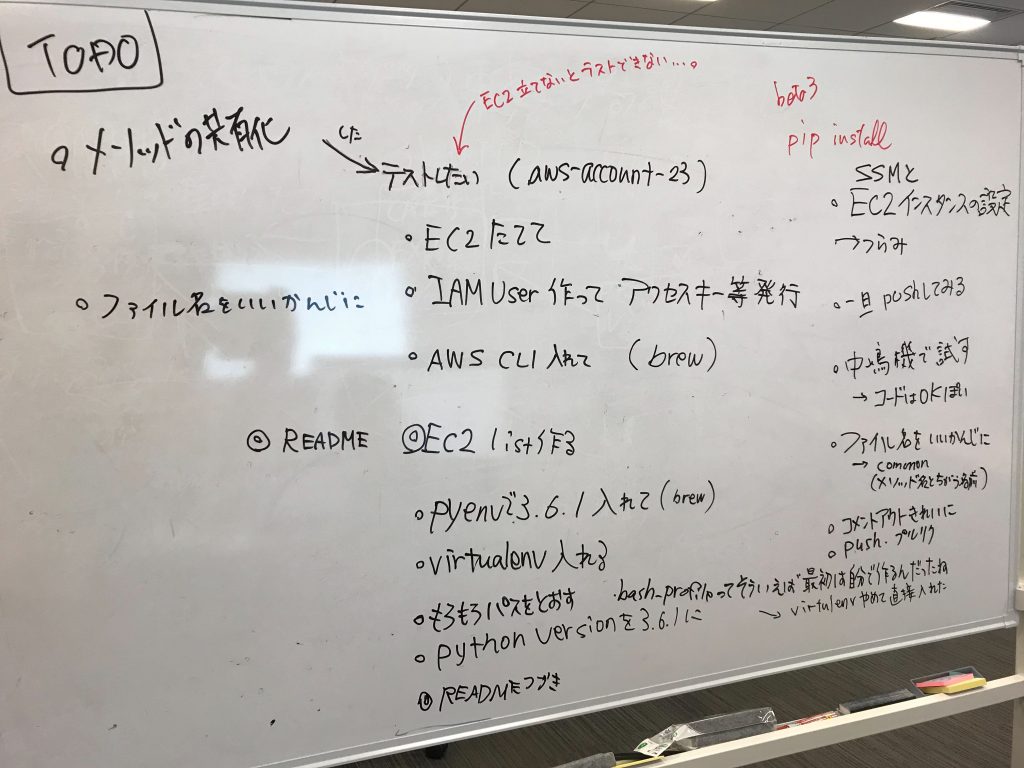 TODO
○ メソッドの共有化
○ ファイル名をいいかんじに
◎ README
した
→ テストしたい (aws-account-23)
EC2立てないとテストできない…。
・EC2たてて
・IAM User 作って アクセスキー等発行
・AWS CLI 入れて (brew)
◎EC2 list作る
・pyenvで3.6.1入れて(brew)
・virtualenv 入れる
・もろもろパスをとおす
.bash_profileってそういえば最初は自分で作るんだったね
○ python versionを3.6.1に
→ virtulenvやめて直接入れた
◎ READMEつづき
boto3
pip install
SSMと
・EC2インスタンスの設定
→つらみ
・一旦pushしてみる
・中嶋機で試す
→ コードはOKぽい
・ファイル名をいいかんじに
→ common
(メソッド名とちがう名前)
・コメントアウトきれいに
・push・プルリク